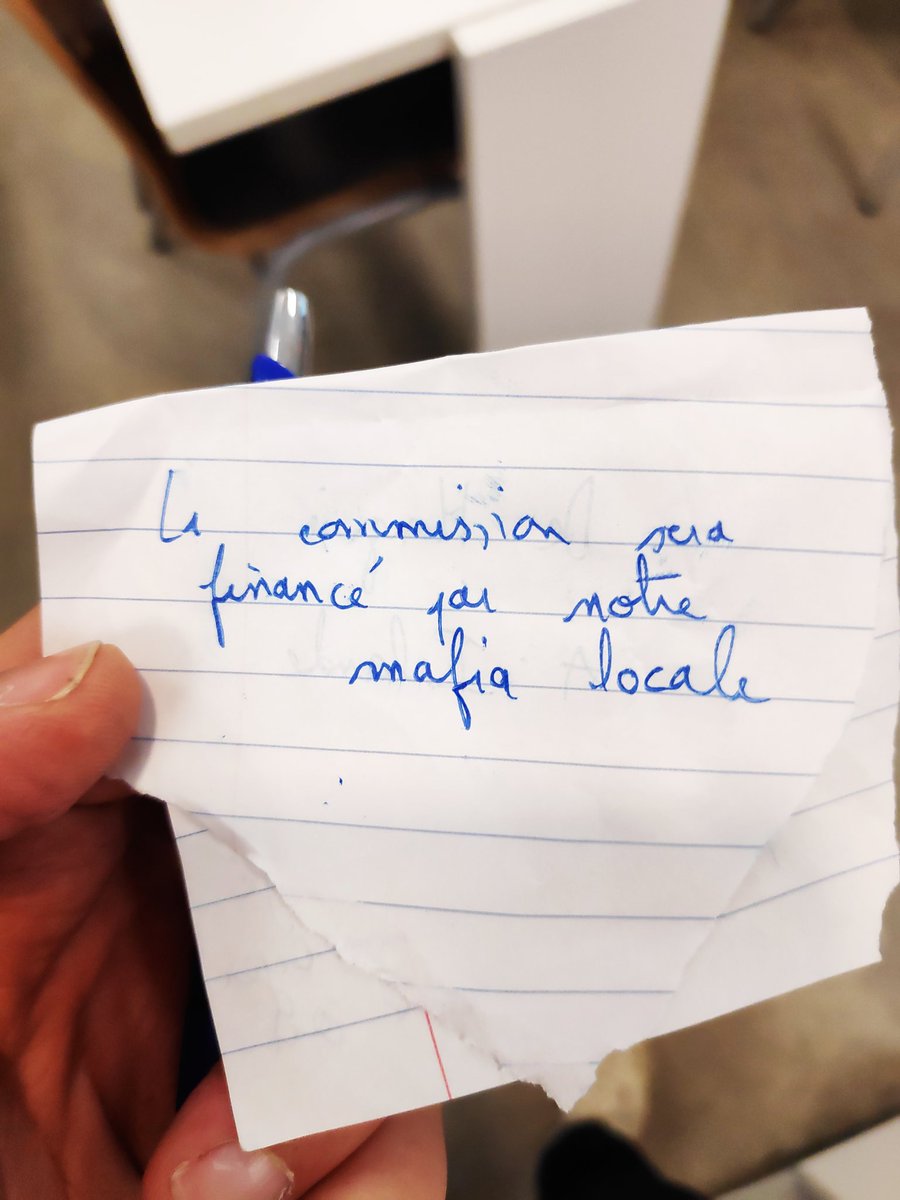 La commission sera
financé par notre
mafia locale